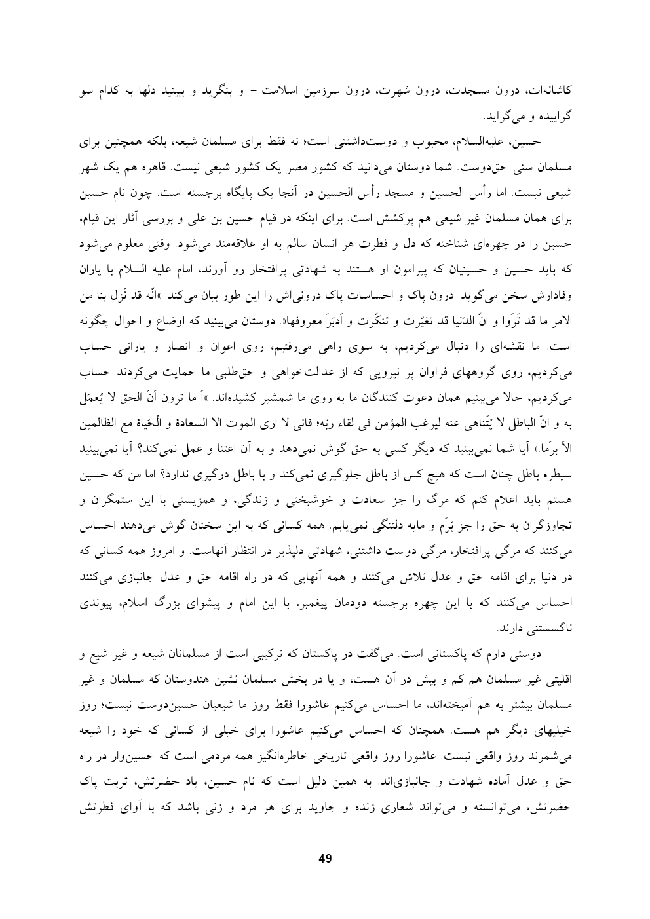 کاشانه‌ات، درون مسجدت، درون شهرت، درون سرزمین اسلامت - و بنگرید و ببینید دلها به کدام سو
گراییده و می‌گراید.
حسین، علیه‌السلام، محبوب و دوست‌داشتنی است؛ نه فقط برای مسلمان شیعه، بلکه همچنین برای
مسلمان سنی حق‌دوست. شما دوستان می‌دانید که کشور مصر یک کشور شیعی نیست. قاهره هم یک شهر
شیعی نیست. اما رأس الحسین و مسجد رأس الحسین در آنجا یک پایگاه برجسته است. چون نام حسین
برای همان مسلمان غیر شیعی هم پرکشش است. برای اینکه در قیام حسین بن علی و بررسی آثار این قیام،
حسین را در چهره‌ای شناخته که دل و فطرت هر انسان سالم به او علاقه‌مند می‌شود. وقتی معلوم می‌شود
که باید حسین و حسینیان که پیرامون او هستند به شهادتی پرافتخار رو آورند، امام علیه السلام با یاران
وفادارش سخن می‌گوید. درون پاک و احساسات پاک درونی‌اش را این طور بیان می‌کند: »انّه قد نُزل بنا من
الامر ما قد تَرَوا و انّ الدّنیا قد تغیّرت و تنکّرت و اَدبَرَ معروفها«. دوستان می‌بینید که اوضاع و احوال چگونه
است. ما نقشه‌ای را دنبال می‌کردیم، به سوی راهی می‌رفتیم، روی اعوان و انصار و یارانی حساب
می‌کردیم، روی گروههای فراوان پر نیرویی که از عدالت‌خواهی و حق‌طلبی ما حمایت می‌کردند حساب
می‌کردیم، حالا می‌بینیم همان دعوت کنندگان ما به روی ما شمشیر کشیده‌اند. »اَ ما ترون اَنّ الحق لا یُعمَل
به و انّ الباطل لا یُتَناهی عنه لیرغب المؤمن فی لقاء ربّه؛ فانی لا اری الموت الا السعادة و الْحَیاة مع الظالمین
الاّ برَما.» آیا شما نمی‌بینید که دیگر کسی به حق گوش نمی‌دهد و به آن اعتنا و عمل نمی‌کند؟ آیا نمی‌بینید
سیطره باطل چنان است که هیچ کس از باطل جلوگیری نمی‌کند و با باطل درگیری ندارد؟ اما من که حسین
هستم باید اعلام کنم که مرگ را جز سعادت و خوشبختی و زندگی، و همزیستی با این ستمگران و
تجاوزگران به حق را جز بَرَم و مایه دلتنگی نمی‌یابم. همه کسانی که به این سخنان گوش می‌دهند احساس
می‌کنند که مرگی پرافتخار، مرگی دوست داشتنی، شهادتی دلپذیر در انتظار آنهاست. و امروز همه کسانی که
در دنیا برای اقامه حق و عدل تلاش می‌کنند و همه آنهایی که در راه اقامه حق و عدل جانبازی می‌کنند
احساس می‌کنند که با این چهره برجسته دودمان پیغمبر، با این امام و پیشوای بزرگ اسلام، پیوندی
ناگسستنی دارند.
دوستی دارم که پاکستانی است. می‌گفت در پاکستان که ترکیبی است از مسلمانان شیعه و غیر شیع و
اقلیتی غیر مسلمان هم کم و بیش در آن هست، و یا در بخش مسلمان نشین هندوستان که مسلمان و غیر
مسلمان بیشتر به هم آمیخته‌اند، ما احساس می‌کنیم عاشورا فقط روز ما شیعیان حسین‌دوست نیست؛ روز
خیلیهای دیگر هم هست. همچنان که احساس می‌کنیم عاشورا برای خیلی از کسانی که خود را شیعه
می‌شمرند روز واقعی نیست. عاشورا روز واقعی تاریخی خاطره‌انگیز همه مردمی است که حسین‌وار در راه
حق و عدل آماده شهادت و جانبازی‌اند. به همین دلیل است که نام حسین، یاد حضرتش، تربت پاک
حضرتش، می‌توانسته و می‌تواند شعاری زنده و جاوید برای هر مرد و زنی باشد که با آوای فطرتش
49